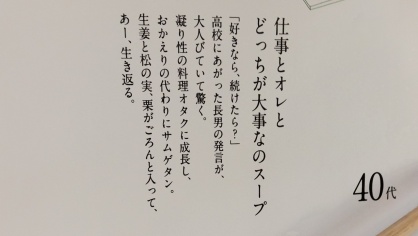 仕事とオレと
どっちが大事なのスープ
「好きなら、続けたら？」
高校にあがった長男の発言が、
大人びていて驚く。
凝り性の料理オタクに成長し、
おかえりの代わりにサムゲタン。
生姜と松の実、栗がごろんと入って、
あー、生き返る。
40代